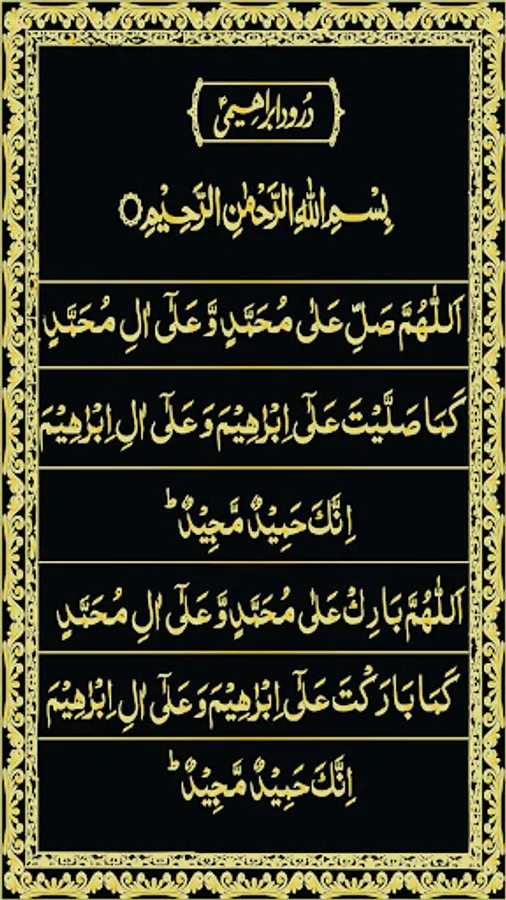 درود ابراہیمی
بِسْمِ اللهِ الرَّحْمٰنِ الرَّحِيْمِ۝
اَللّٰهُمَّ صَلِّ عَلٰى مُحَمَّدٍ وَّعَلٰٓى اٰلِ مُحَمَّدٍ
كَمَا صَلَّيْتَ عَلٰٓى اِبْرٰهِيْمَ وَعَلٰٓى اٰلِ اِبْرٰهِيْمَ
اِنَّكَ حَمِيْدٌ مَّجِيْدٌ ؕ
اَللّٰهُمَّ بَارِكْ عَلٰى مُحَمَّدٍ وَّعَلٰٓى اٰلِ مُحَمَّدٍ
كَمَا بَارَكْتَ عَلٰٓى اِبْرٰهِيْمَ وَعَلٰٓى اٰلِ اِبْرٰهِيْمَ
اِنَّكَ حَمِيْدٌ مَّجِيْدٌ ؕ